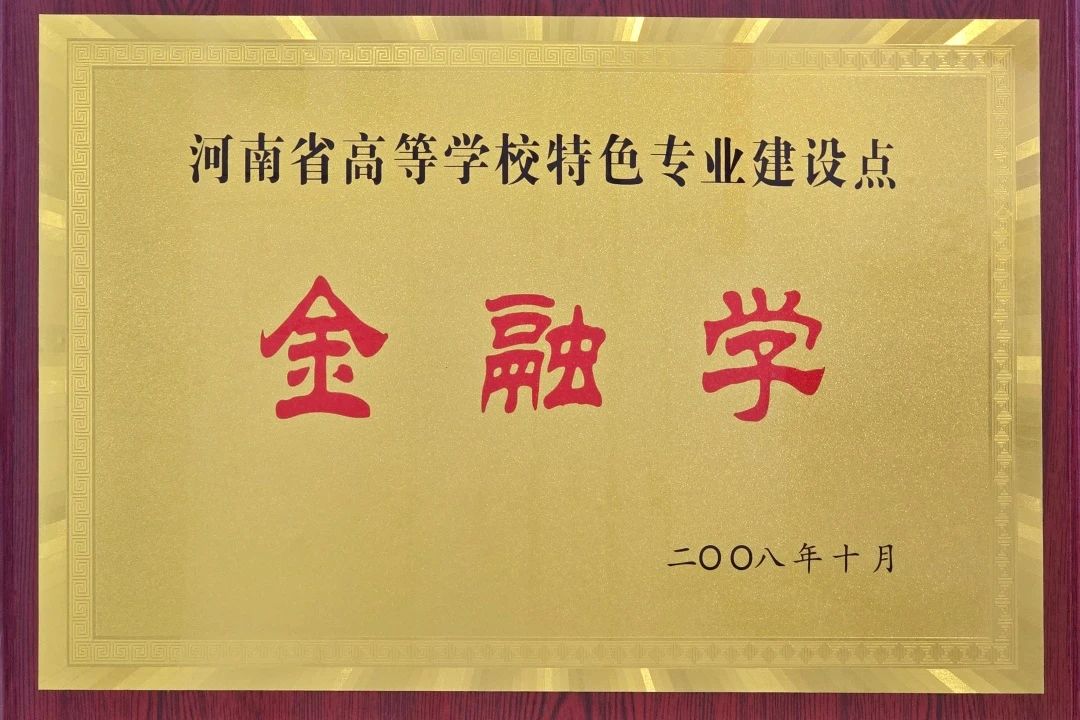 河南省高等学校特色专业建设点
金融学
二〇〇八年十月